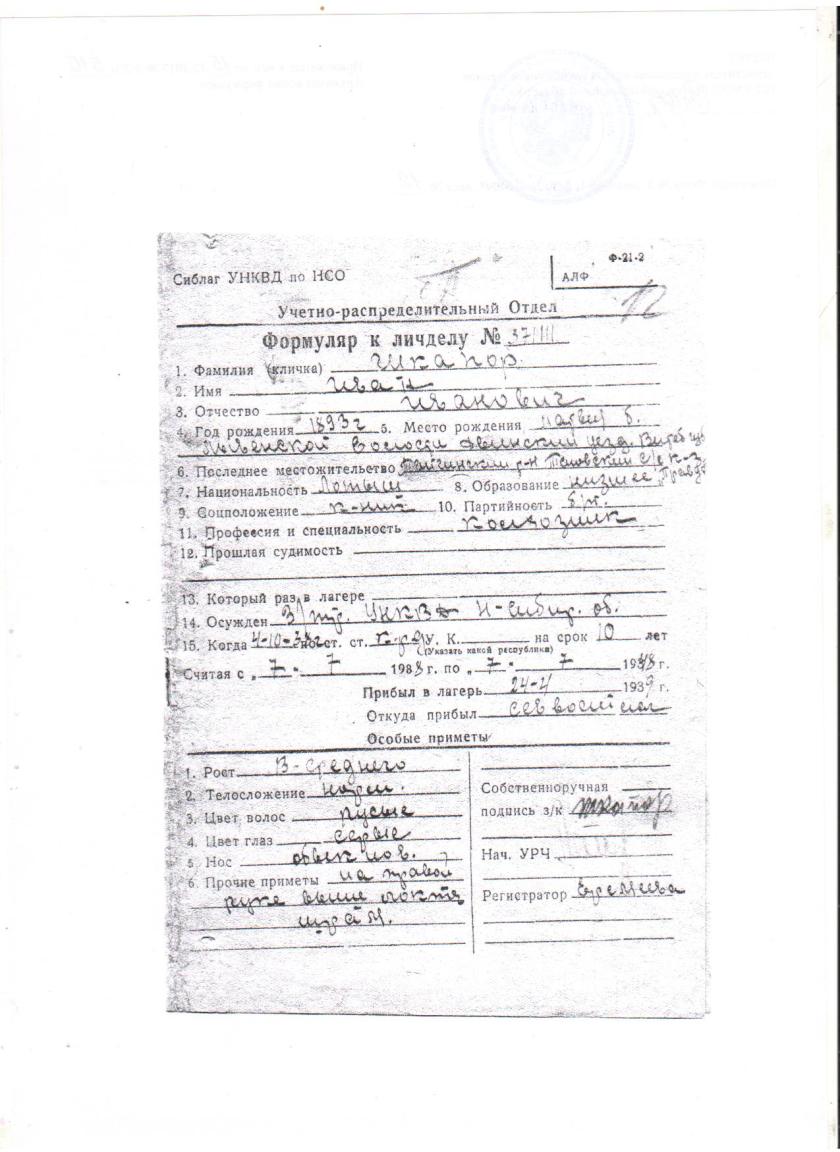 Ф-21-2
Сиблаг УНКВД по НСО
АЛФ
12
Учетно-распределительный Отдел
Формуляр к личделу №
1. Фамилия (кличка) Шкапор
2. Имя Иван
3. Отчество Иванович
4. Год рождения 1893 г 5. Место рождения
волости Двинский уезд.
6. Последнее местожительство р-н с/с к-з
7. Национальность Латыш 8. Образование низшее
9. Соцположение к-ник 10. Партийность б/п.
11. Профессия и специальность колхозник
12. Прошлая судимость
13. Который раз в лагере
14. Осужден УНКВД Н-Сибир. об.
15. Когда 4-10-38г по ст. ст. к.р. У. К. на срок 10 лет
(Указать какой республики)
Считая с „ 7 - 7 1938 г. по „ 7 - 7 1948 г.
Прибыл в лагерь 24-4 1939 г.
Откуда прибыл
Особые приметы
1. Рост В-среднего
2. Телосложение норм.
3. Цвет волос русые
4. Цвет глаз серые
5. Нос обыкнов.
6. Прочие приметы на правой
руке выше локтя
шрам.
Собственноручная
подпись з/к Шкапор
Нач. УРЧ
Регистратор